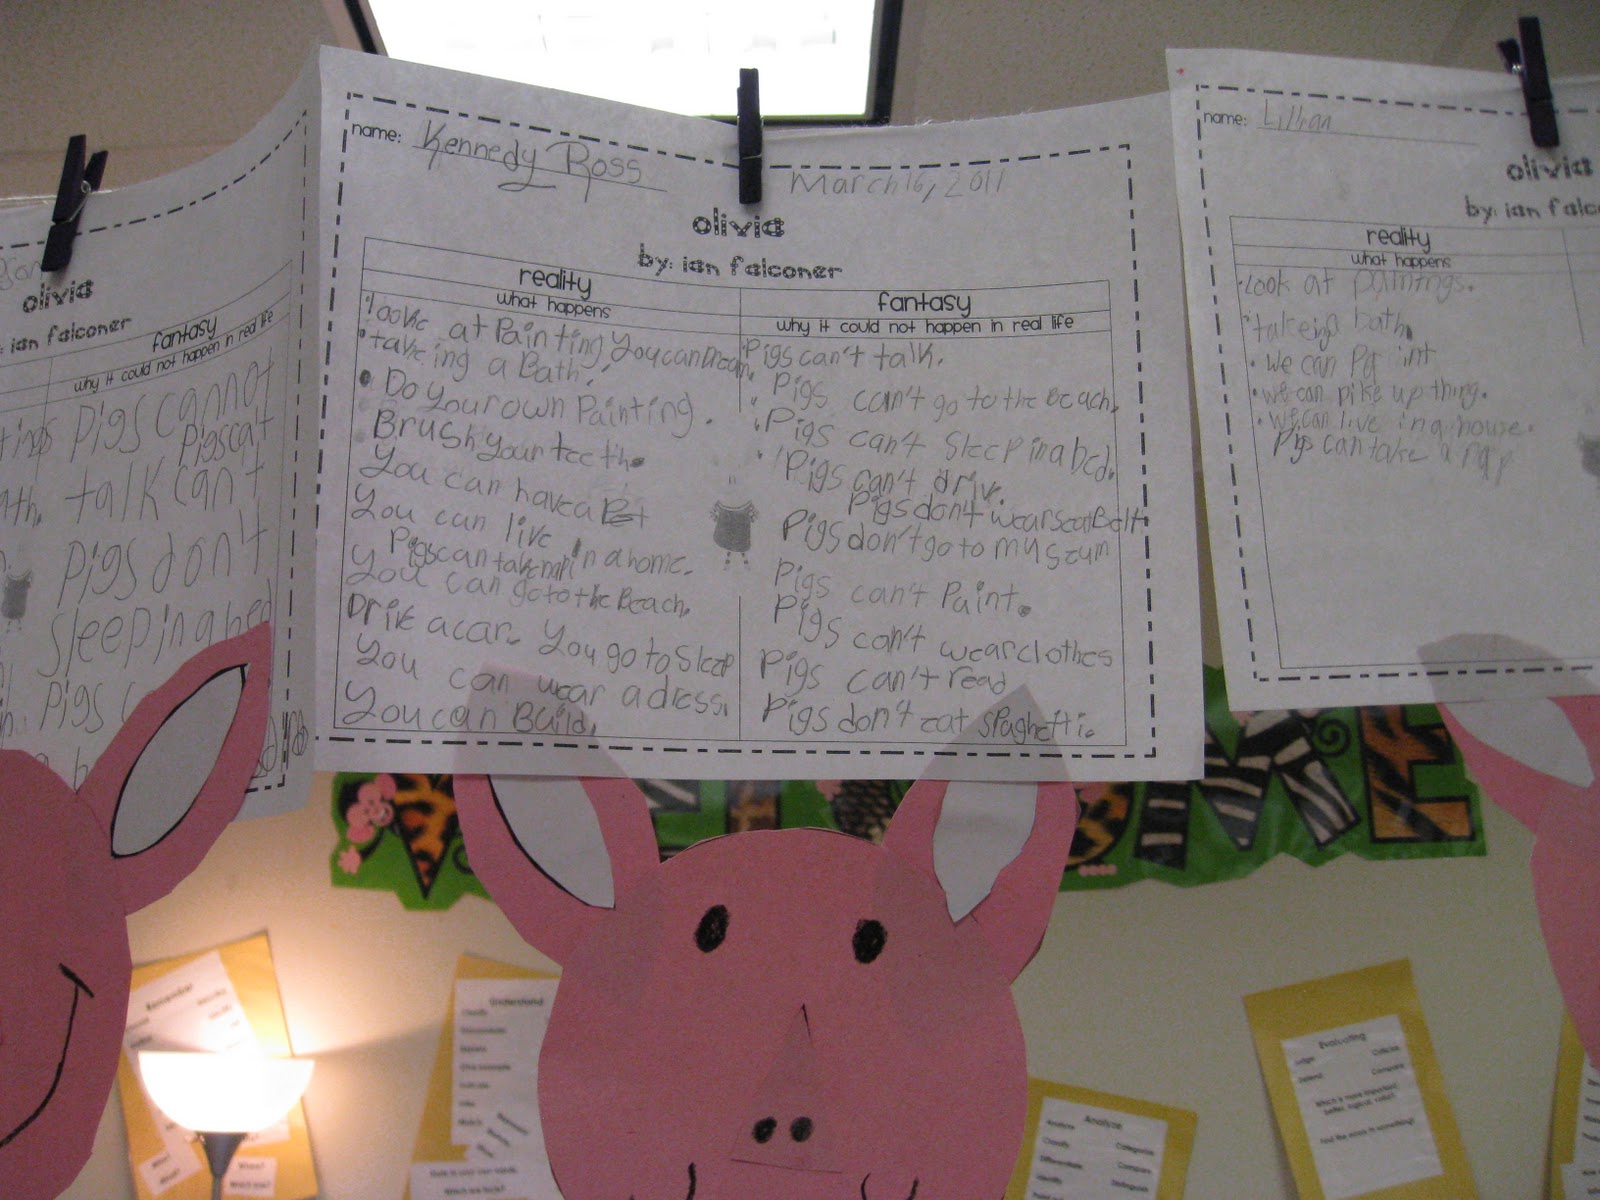 olivia
ian falconer
fantasy
why it could not happen in real life
Pigs cannot
Pigscan't
talk can't
Pigs don't
Sleepinabed
Pigs
name: Kennedy Ross
March 16, 2011
olivia
by: ian falconer
reality
what happens
•looke at Painting YoucanDream.
•takeing a Bath.
•Do Your own Painting.
Brush your teeth.
You can have a Pet
You can live in a home.
Pigscantakenap
You can go to the Beach.
Drive a car. You go to Sleep
You can wear a dress.
You can Build.
fantasy
why it could not happen in real life
•Pigs can't talk.
•Pigs can't go to the Beach.
•Pigs can't Sleep in a bed.
•Pigs can't drive.
Pigs don't wear seat Belt
Pigs don't go to Myseum
Pigs can't Paint.
Pigs can't wear clothes
Pigs can't read
Pigs don't eat Spaghetti.
name: Lillian
olivia
by: ian falco
reality
what happens
•Look at paintings.
•takeing bath.
•We can Paint
•we can pike up thing.
•we can live in a house.
Pigs can take a nap
WE OME
Remember
Understand
Classify
Analyze
Classify
Categorize
Differentiate
Compare
Identify
Distinguish
Evaluating
Judge
Criticize
Defend
Compare
Which is more important,
better, logical, valid?
Find the errors in something?